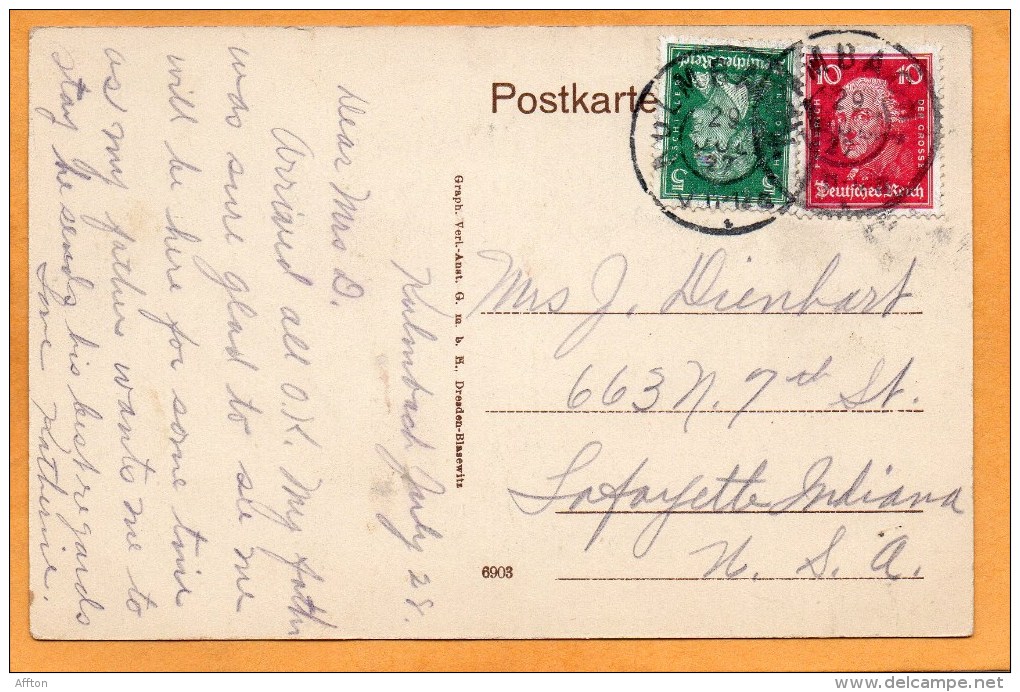 Postkarte
Kulmbach July 28.
Dear Mrs D.
Arrived all O.K. My fath
was sure glad to see me
will be here for some time
as my fathers wants me to
stay he sends his best regards
Love Katherine.
Graph. Verl.-Anst. G. m. b. H., Dresden-Blasewitz
6903
Deutsches Reich
SCHILLER
5 5
10 10
FRIEDRICH DER GROSSE
Deutsches Reich
KULMBACH
29
JUL
27
Mrs J. Dienhart
663 N. 7th St.
Lafayette Indiana
U. S. A.
Affton
www.delcampe.net